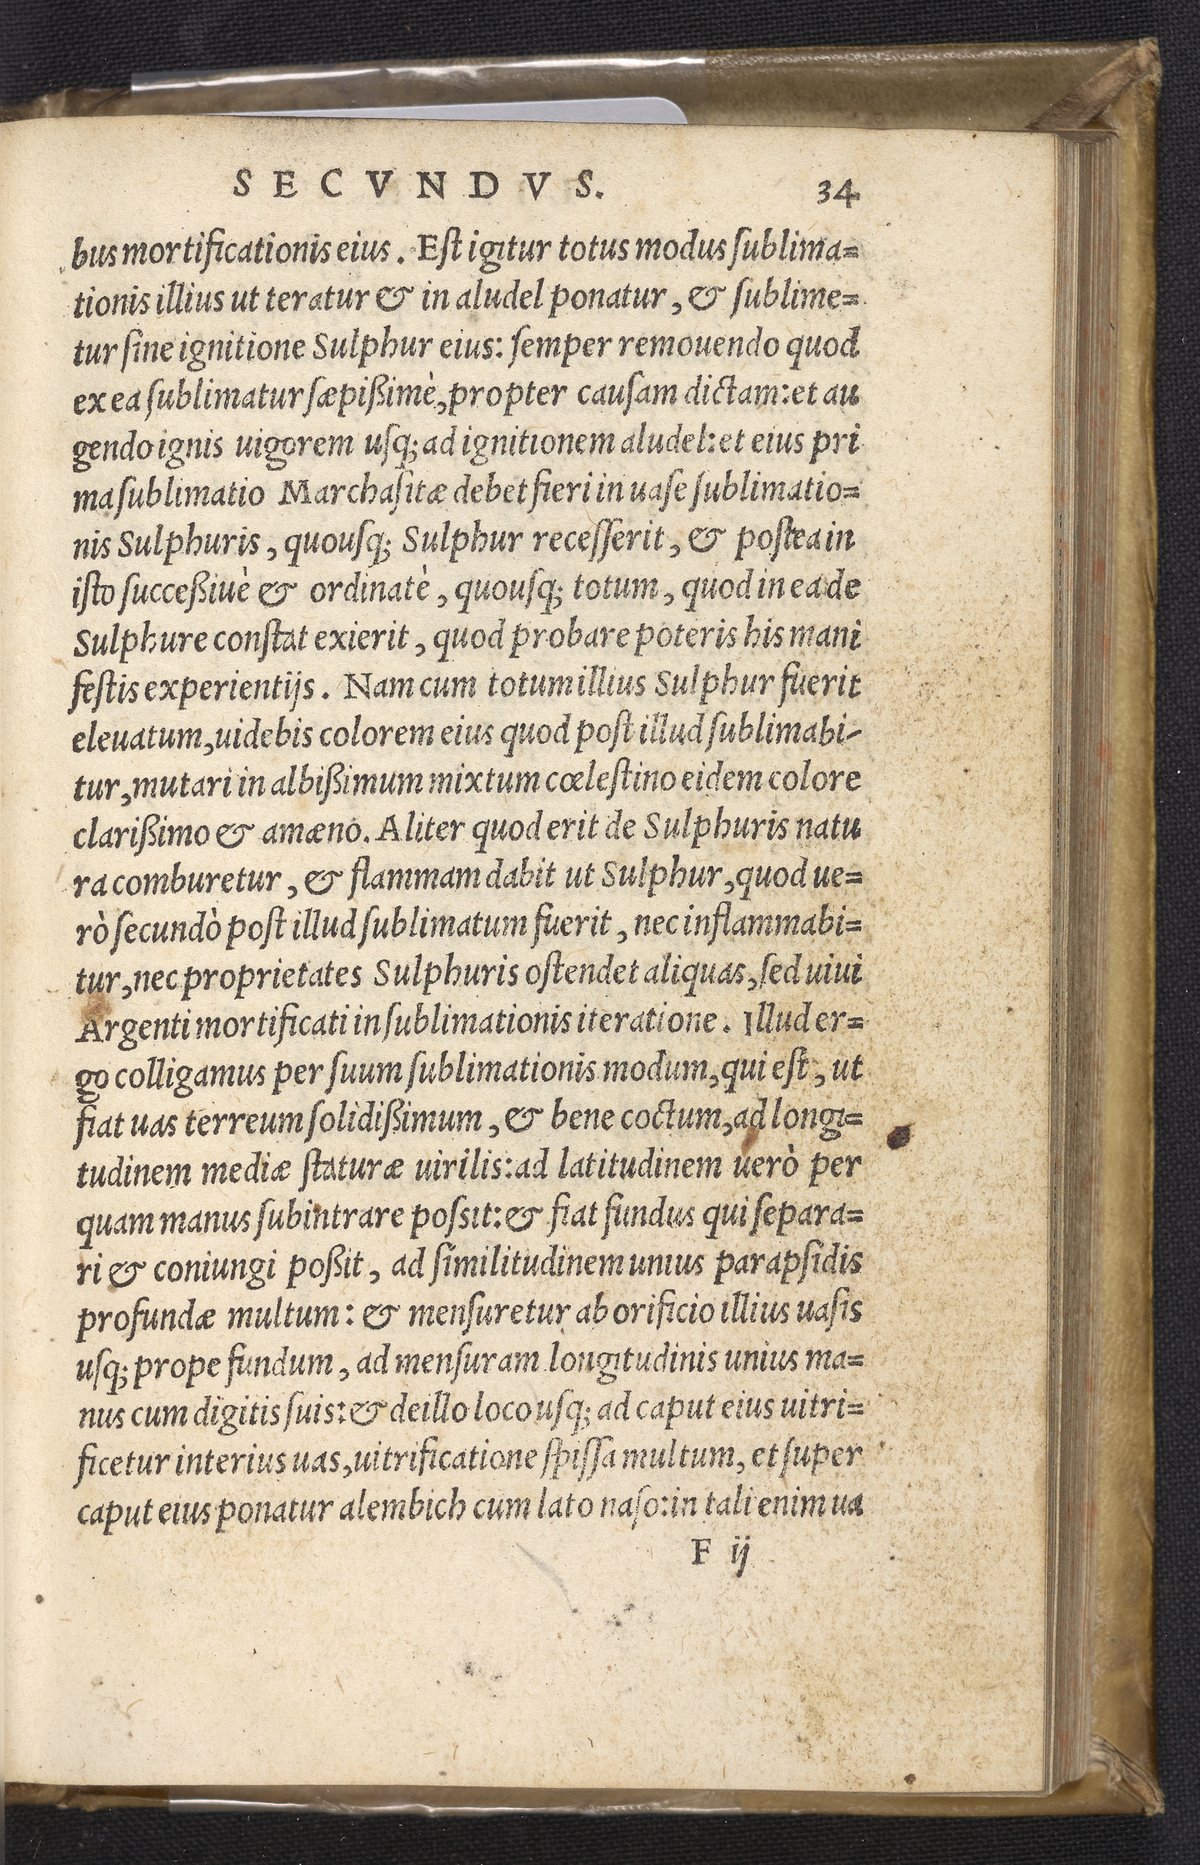 SECVNDVS. 34
bus mortificationis eius. Est igitur totus modus ſublima=
tionis illius ut teratur & in aludel ponatur, & ſublime=
tur ſine ignitione Sulphur eius: ſemper remouendo quod
ex ea ſublimatur ſæpißimè, propter cauſam dictam: et au
gendo ignis uigorem uſq; ad ignitionem aludel: et eius pri
ma ſublimatio Marchaſitæ debet fieri in uaſe ſublimatio=
nis Sulphuris, quouſq; Sulphur receſſerit, & poſtea in
iſto ſucceßiuè & ordinatè, quouſq; totum, quod in ea de
Sulphure conſtat exierit, quod probare poteris his mani
feſtis experientijs. Nam cum totum illius Sulphur fuerit
eleuatum, uidebis colorem eius quod poſt illud ſublimabi-
tur, mutari in albißimum mixtum cœleſtino eidem colore
clarißimo & amæno. Aliter quod erit de Sulphuris natu
ra comburetur, & flammam dabit ut Sulphur, quod ue=
rò ſecundò poſt illud ſublimatum fuerit, nec inflammabi=
tur, nec proprietates Sulphuris oſtendet aliquas, ſed uiui
Argenti mortificati in ſublimationis iteratione. Illud er=
go colligamus per ſuum ſublimationis modum, qui eſt, ut
fiat uas terreum ſolidißimum, & bene coctum, ad longi=
tudinem mediæ ſtaturæ uirilis: ad latitudinem uerò per
quam manus ſubintrare poſsit: & fiat fundus qui ſepara=
ri & coniungi poßit, ad ſimilitudinem unius parapſidis
profundæ multum: & menſuretur ab orificio illius uaſis
uſq; prope fundum, ad menſuram longitudinis unius ma=
nus cum digitis ſuis: & de illo loco uſq; ad caput eius uitri=
ficetur interius uas, uitrificatione ſpiſſa multum, et ſuper
caput eius ponatur alembich cum lato naſo: in tali enim ua
F ij